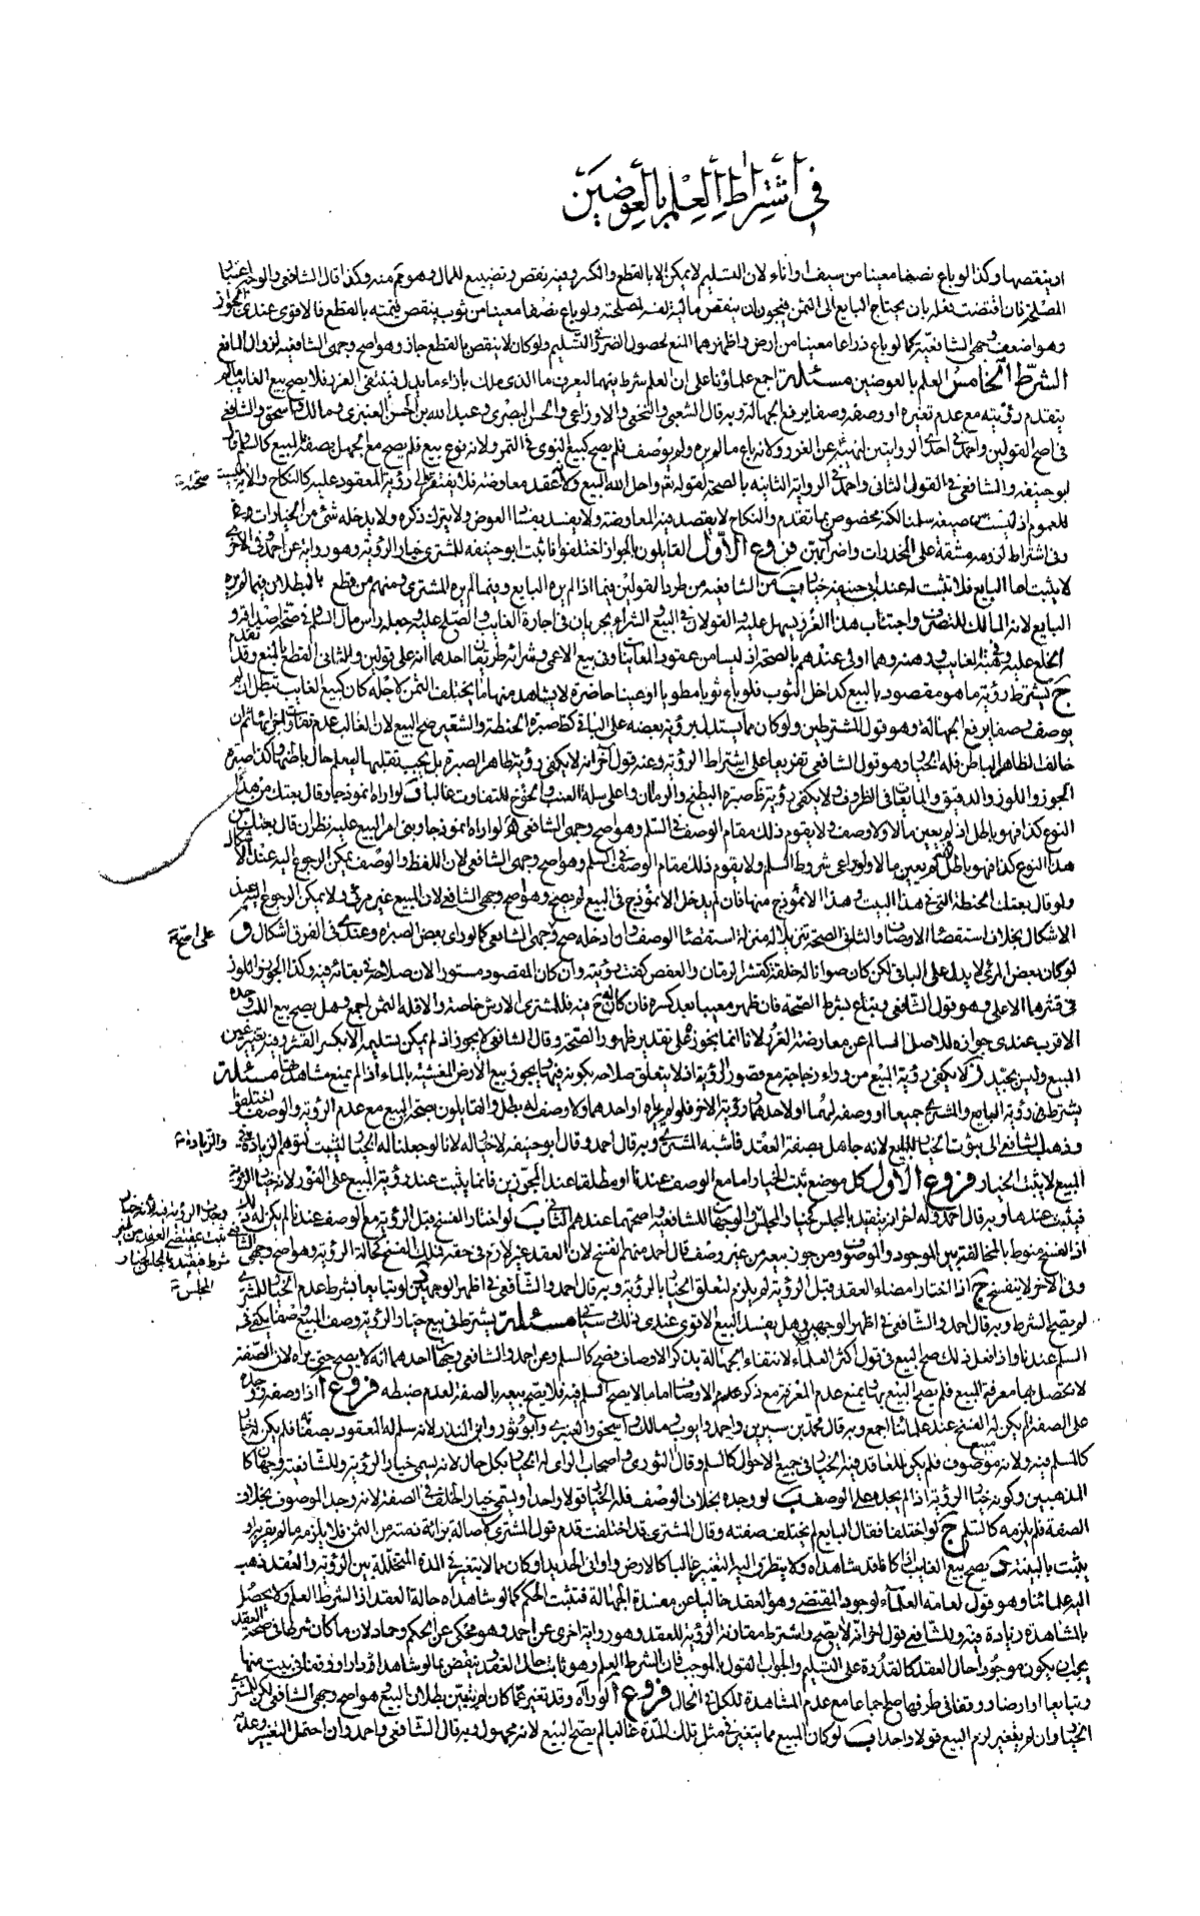 في اشتراط العلم بالعوضين
او ينقصها وكذا لو باع نصفا معينا من سيف او اناء لان التسليم لا يمكن الا بالقطع والكسر وفيه نقص وتضييع للمال وهو ممنوع منه وكذا قال الشافعي والوجه اعتبار
المصلحة فان اقتضت فعله بان يحتاج البايع الى الثمن فيجوز ان ينقص مالية نفسه لمصلحة ولو باع نصفا معينا من ثوب ينقص قيمته بالقطع فالاقوى عندي الجواز
وهو اضعف وجهي الشافعية كما لو باع ذراعا معينا من ارض واظهرهما المنع لحصول الضرر في التسليم ولو كان لا ينقص بالقطع جاز وهو اصح وجهي الشافعية لزوال المانع
الشرط الخامس العلم بالعوضين مسئلة اجمع علماؤنا على ان العلم شرط بينهما ليعرف ما الذي ملك بازاء ما بذل فينتفي الغرر فلا يصح بيع الغائب ما لم
يتقدم رؤيته مع عدم تغيره او وصفه وصفا يرفع الجهالة وبه قال الشعبي والنخعي والاوزاعي والحسن البصري وعبيد الله بن الحسن العنبري ومالك واسحق والشافعي
في اصح القولين واحمد في احدى الروايتين لنهيه عن الغرر ولانه باع ما لم يره ولم يوصف فلم يصح كبيع النوى في التمر ولانه نوع بيع فلم يصح مع الجهل بصفة المبيع كالسلم وقال
ابو حنيفة والشافعي في القول الثاني واحمد في الرواية الثانية بالصحة لقوله تع واحل الله البيع ولانه عقد معاوضة فلا يفتقر الى رؤية المعقود عليه كالنكاح والاية ليست
صحته
للعموم اذ ليست من صيغه سلمنا لكنه مخصوص بما تقدم والنكاح لا يقصد فيه المعاوضة ولا يفسد بفساد العوض ولا بترك ذكره ولا يدخله شئ من الخيارات
وفي اشتراط الرؤية مشقة على المخدرات واضرار بهن فروع الاول القايلون بالجواز اختلفوا فاثبت ابو حنيفة للمشتري خيار الرؤية وهو رواية عن احمد وفي الاخرى
لا يثبت اما البايع فلا تثبت له عند ابي حنيفة خيار ب من الشافعية من طرد القولين فيما اذا لم يره البايع وفيما لم يره المشتري ومنهم من قطع بالبطلان فيما لم يره
البايع لانه المالك المتصرف واجتناب هذا الغرر يسهل عليه والقولان في البيع والشراء يجريان في اجارة الغائب والصلح عليه وجعله راس مال السلم
الخلع عليه وفي هبة الغائب ورهنه وهما اولى عندهم بالصحة اذ ليسا من عقود المغابنات وفي بيع الاعمى وشرائه طريقان احدهما انه على قولين والثاني القطع بالمنع وقد تقدم
ج يشترط رؤية ما هو مقصود بالبيع كداخل الثوب فلو باع ثوبا مطويا او عينا حاضرة لا يشاهد منها ما يختلف الثمن لاجله كان كبيع الغائب يبطل ان لم
يوصف وصفا يرفع الجهالة وهو قول المشترطين ولو كان مما يستدل برؤية بعضه على الباقي كظاهر صبرة الحنطة والشعير صح البيع لان الغالب عدم تفاوت اجزائها ثم ان
خالف الظاهر الباطن فله الخيار وهو قول الشافعي تفريعا على اشتراط الرؤية وعنه قول اخر انه لا يكفي رؤية ظاهر الصبرة بل يجب تقليبها ليعلم حال باطنها وكذا صبرة
الجوز واللوز والدقيق والمايعات في الظروف ولا يكفي رؤية ظاهر صبرة البطيخ والرمان واعلى سلة العنب والخوخ للتفاوت غالبا د لو اراه انموذجا وقال بعتك من هذا
النوع كذا فهو باطل اذ لم يعين مالا ولا وصف ولا يقوم ذلك مقام الوصف في السلم وهو اصح وجهي الشافعي ه لو اراه انموذجا وبنى امر المبيع عليه نظر ان قال بعتك من
هذا النوع كذا فهو باطل لانه لم يعين مالا ولم يراع شروط السلم ولا يقوم ذلك مقام الوصف في السلم وهو اصح وجهي الشافعي لان اللفظ والوصف يمكن الرجوع اليه عند الاشكال
ولو قال بعتك الحنطة التي في هذا البيت وهذا الانموذج منها فان لم يدخل الانموذج في البيع لم يصح وهو اصح وجهي الشافعي لان المبيع غير مرئي ولا يمكن الرجوع اليه عند
الاشكال بخلاف استقصاء الاوصاف والثاني الصحة تنزيلا له منزلة استقصاء الوصف وان ادخله صح وجهي الشافعي كما لو راى بعض الصبرة وعندي في الفرق اشكال و
على اصح
لو كان بعض المرئي لا يدل على الباقي لكن كان صوانا له خلقة كقشر الرمان والعفص كفت رؤيته وان كان المقصود مستورا لان صلاحه في بقائه فيه وكذا الجوز واللوز
في قشرهما الاعلى وهو قول الشافعي ويتباع بشرط الصحة فان ظهر معيبا بعد كسره فان كان لقشره فيه فللمشتري الارش خاصة والا فله الثمن اجمع وهل يصح بيع اللب وحده
الاقرب عندي جوازه للاصل السالم عن معارضة الغرر لانا انما نجوزه على تقدير ظهور الصحة وقال الشافعي لا يجوز اذ لم يمكن تسليمه الا بكسر القشر وفيه تغيير عين
المبيع وليس بجيد ز لا يكفي رؤية المبيع من وراء زجاجة مع قصور الرؤية اذ لا يتعلق صلاحه بكونه فيها ويجوز بيع الارض المغشية بالماء اذا لم يمنع مشاهدتها مسئلة
يشترط في رؤية البايع والمشتري جميعا او وصفه لهما او لاحدهما ورؤية الاخر فلو لم يرياه او احدهما ولا وصف له بطل والقايلون بصحة البيع مع عدم الرؤية والوصف اختلفوا
وذهب الشافعي الى ثبوت الخيار للبايع لانه جاهل بصفة العقد فاشبه المشتري وبه قال احمد وقال ابو حنيفة لا خيار له لانا لو جعلنا له الخيار لثبت لتوهم الزيادة في
والزيادة في
المبيع لا يثبت الخيار فروع الاول كل موضع ثبت الخيار اما مع الوصف عندنا او مطلقا عند المجوزين فانما يثبت عند رؤية المبيع على الفور لانه خيار الرؤية
فيثبت عندها وبه قال احمد وله اخر انه يتقيد بالمجلس كخيار المجلس والوجهان للشافعية واصحهما عندهم الثاني ب لو اختار الفسخ قبل الرؤية مع الوصف عندنا لم يكن له ذلك
وبحث الرؤية فيه لانه خيار
ثبت بمقتضى العقد من غير
شرط فيتقيد بالمجلس كخيار
المجلس
اذ الفسخ منوط بالمخالفة بين الموجود والموصوف ومن جوز بيعه من غير وصف قال احمد منهم الفسخ لان العقد غير لازم في حقه فملك الفسخ كحالة الرؤية وهو اصح وجهي الشافعي
وفي الاخر لا ينفسخ ج اذا اختار امضاء العقد قبل الرؤية لم يلزم لتعلق الخيار بالرؤية وبه قال احمد والشافعي في اظهر الوجهين د لو تبايعا بشرط عدم الخيار للمشتري
لم يصح الشرط وبه قال احمد والشافعي في اظهر الوجهين وهل يفسد البيع الاقوى عندي ذلك وسياتي مسئلة يشترط في بيع خيار الرؤية وصف المبيع وصفا يكفي في
السلم عندنا واذا فعل ذلك صح البيع في قول اكثر العلماء لانتفاء الجهالة بذكر الاوصاف فصح كالسلم وعن احمد والشافعي وجهان احدهما انه لا يصح حتى يراه لان الصفة
لا تحصل بها معرفة المبيع فلم يصح البيع بها ونمنع عدم المعرفة مع ذكر الاوصاف اما ما لا يصح السلم فيه فلا يصح بيعه بالصفة لعدم ضبطه فروع ا اذا وصفه ووجده
على الصفة لم يكن له الفسخ عند علمائنا اجمع وبه قال محمد بن سيرين واحمد وايوب ومالك واسحق والعنبري وابو ثور وابن المنذر لانه سلم له المعقود بصفته فلم يكن له الخيار
كالمسلم فيه ولانه مبيع موصوف فلم يكن للعاقد فيه الخيار في جميع الاحوال كالسلم وقال الثوري واصحاب الراى له الخيار بكل حال لانه يسمى خيار الرؤية وللشافعية وجهان كا
لمذهبين وكونه خيار الرؤية اذا لم يجده على الوصف ب لو وجده بخلاف الوصف فله الخيار قولا واحدا ويسمى خيار الخلف في الصفة لانه وجد الموصوف بخلاف
الصفة فلم يلزمه كالسلم ج لو اختلفا فقال البايع لم يختلف صفته وقال المشتري قد اختلفت قدم قول المشتري لاصالة براءة ذمته من الثمن فلا يلزمه ما لم يقر به او
يثبت بالبينة د يصح بيع الغايب اذا كانا قد شاهداه ولا يتطرق اليه التغير غالبا كالارض واواني الحديد او كان مما لا يتغير في المدة المتخللة بين الرؤية والعقد ذهب
اليه علمائنا وهو قول عامة العلماء لوجود المقتضي وهو العقد خاليا عن مفسدة الجهالة فثبت الحكم كما لو شاهداه حالة العقد اذ الشرط العلم ولا يحصل
بالمشاهدة زيادة فيه وللشافعي قول اخر انه لا يصح واشترط مقارنة الرؤية للعقد وهو رواية اخرى عن احمد وهو محكي عن الحكم وحماد لان ما كان شرطا في صحة العقد
يجب ان يكون موجودا حال العقد كالقدرة على التسليم والجواب القول بالموجب فان الشرط العلم وهو ثابت حال العقد وينتقض بما لو شاهدا دارا ووقفا في بيت منها
وتبايعا او ارضا ووقفا في طرفها صح اجماعا مع عدم المشاهدة للكل في الحال فروع ا لو رآه وقد تغير عما كان لم يتبين بطلان البيع وهو اصح وجهي الشافعي لكن للمشتري
الخيار وان لم يتغير لزم البيع قولا واحدا ب لو كان المبيع مما يتغير في مثل تلك المدة غالبا لم يصح البيع لانه مجهول وبه قال الشافعي واحمد وان احتمل التغير وعدمه